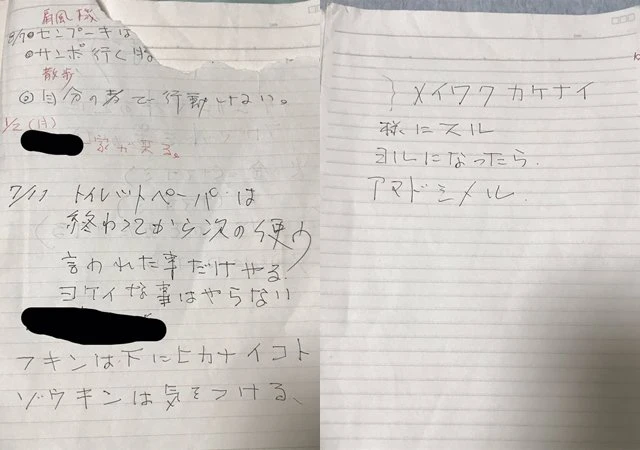 扇風機
8/7 センプーキは
サンポ行く時
散歩
◎自分の考で行動しない。
1/2(月)
家が来る。
7/17 トイレットペーパーは
終わってから次の使う
言われた事だけやる
ヨケイな事はやらない
フキンは下にヒカナイコト
ゾウキンは気をつける、
} メイワク カケナイ
様にスル
ヨルになったら.
アマドシメル.